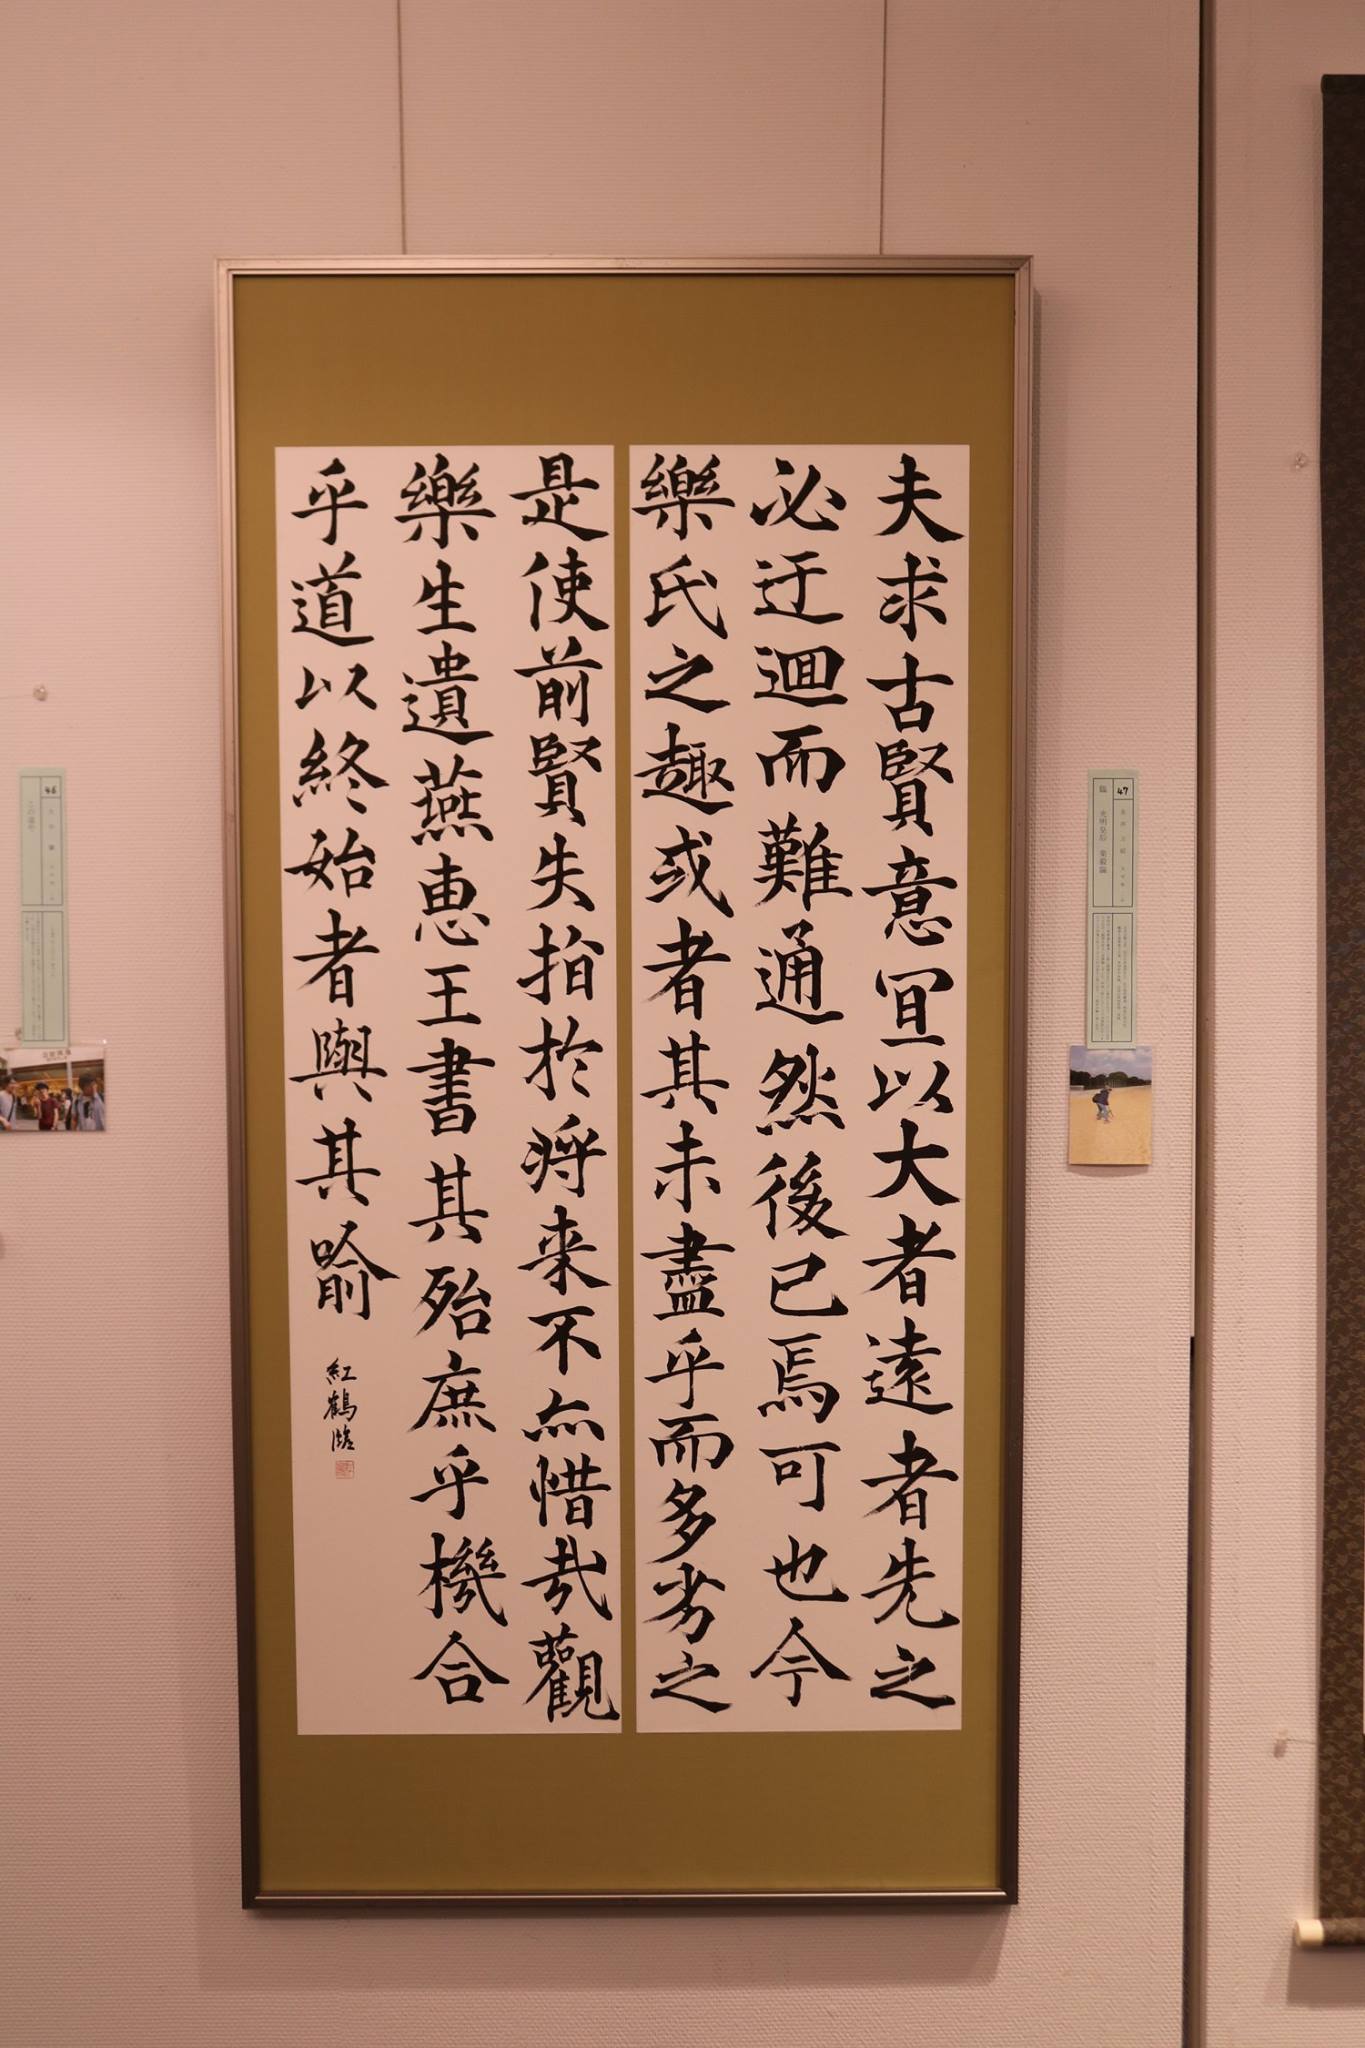 夫求古賢意冝以大者遠者先之
必迂迴而難通然後已焉可也今
樂氏之趣或者其未盡乎而多劣之
是使前賢失指於將来不亦惜哉觀
樂生遺燕惠王書其殆庶乎機合
乎道以終始者與其喻
紅鶴臨
47
臨 光明皇后 楽毅論
46